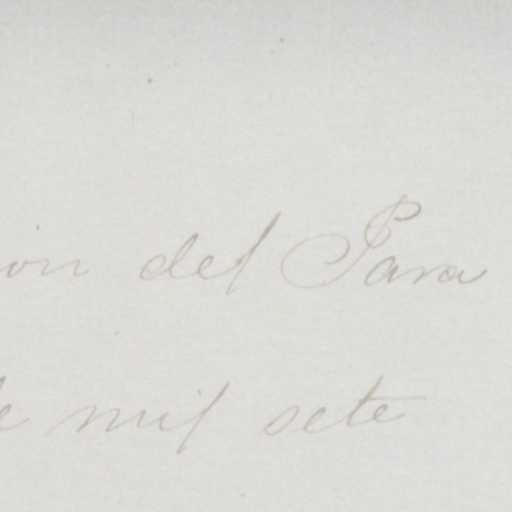 ion del Para
de mil sete